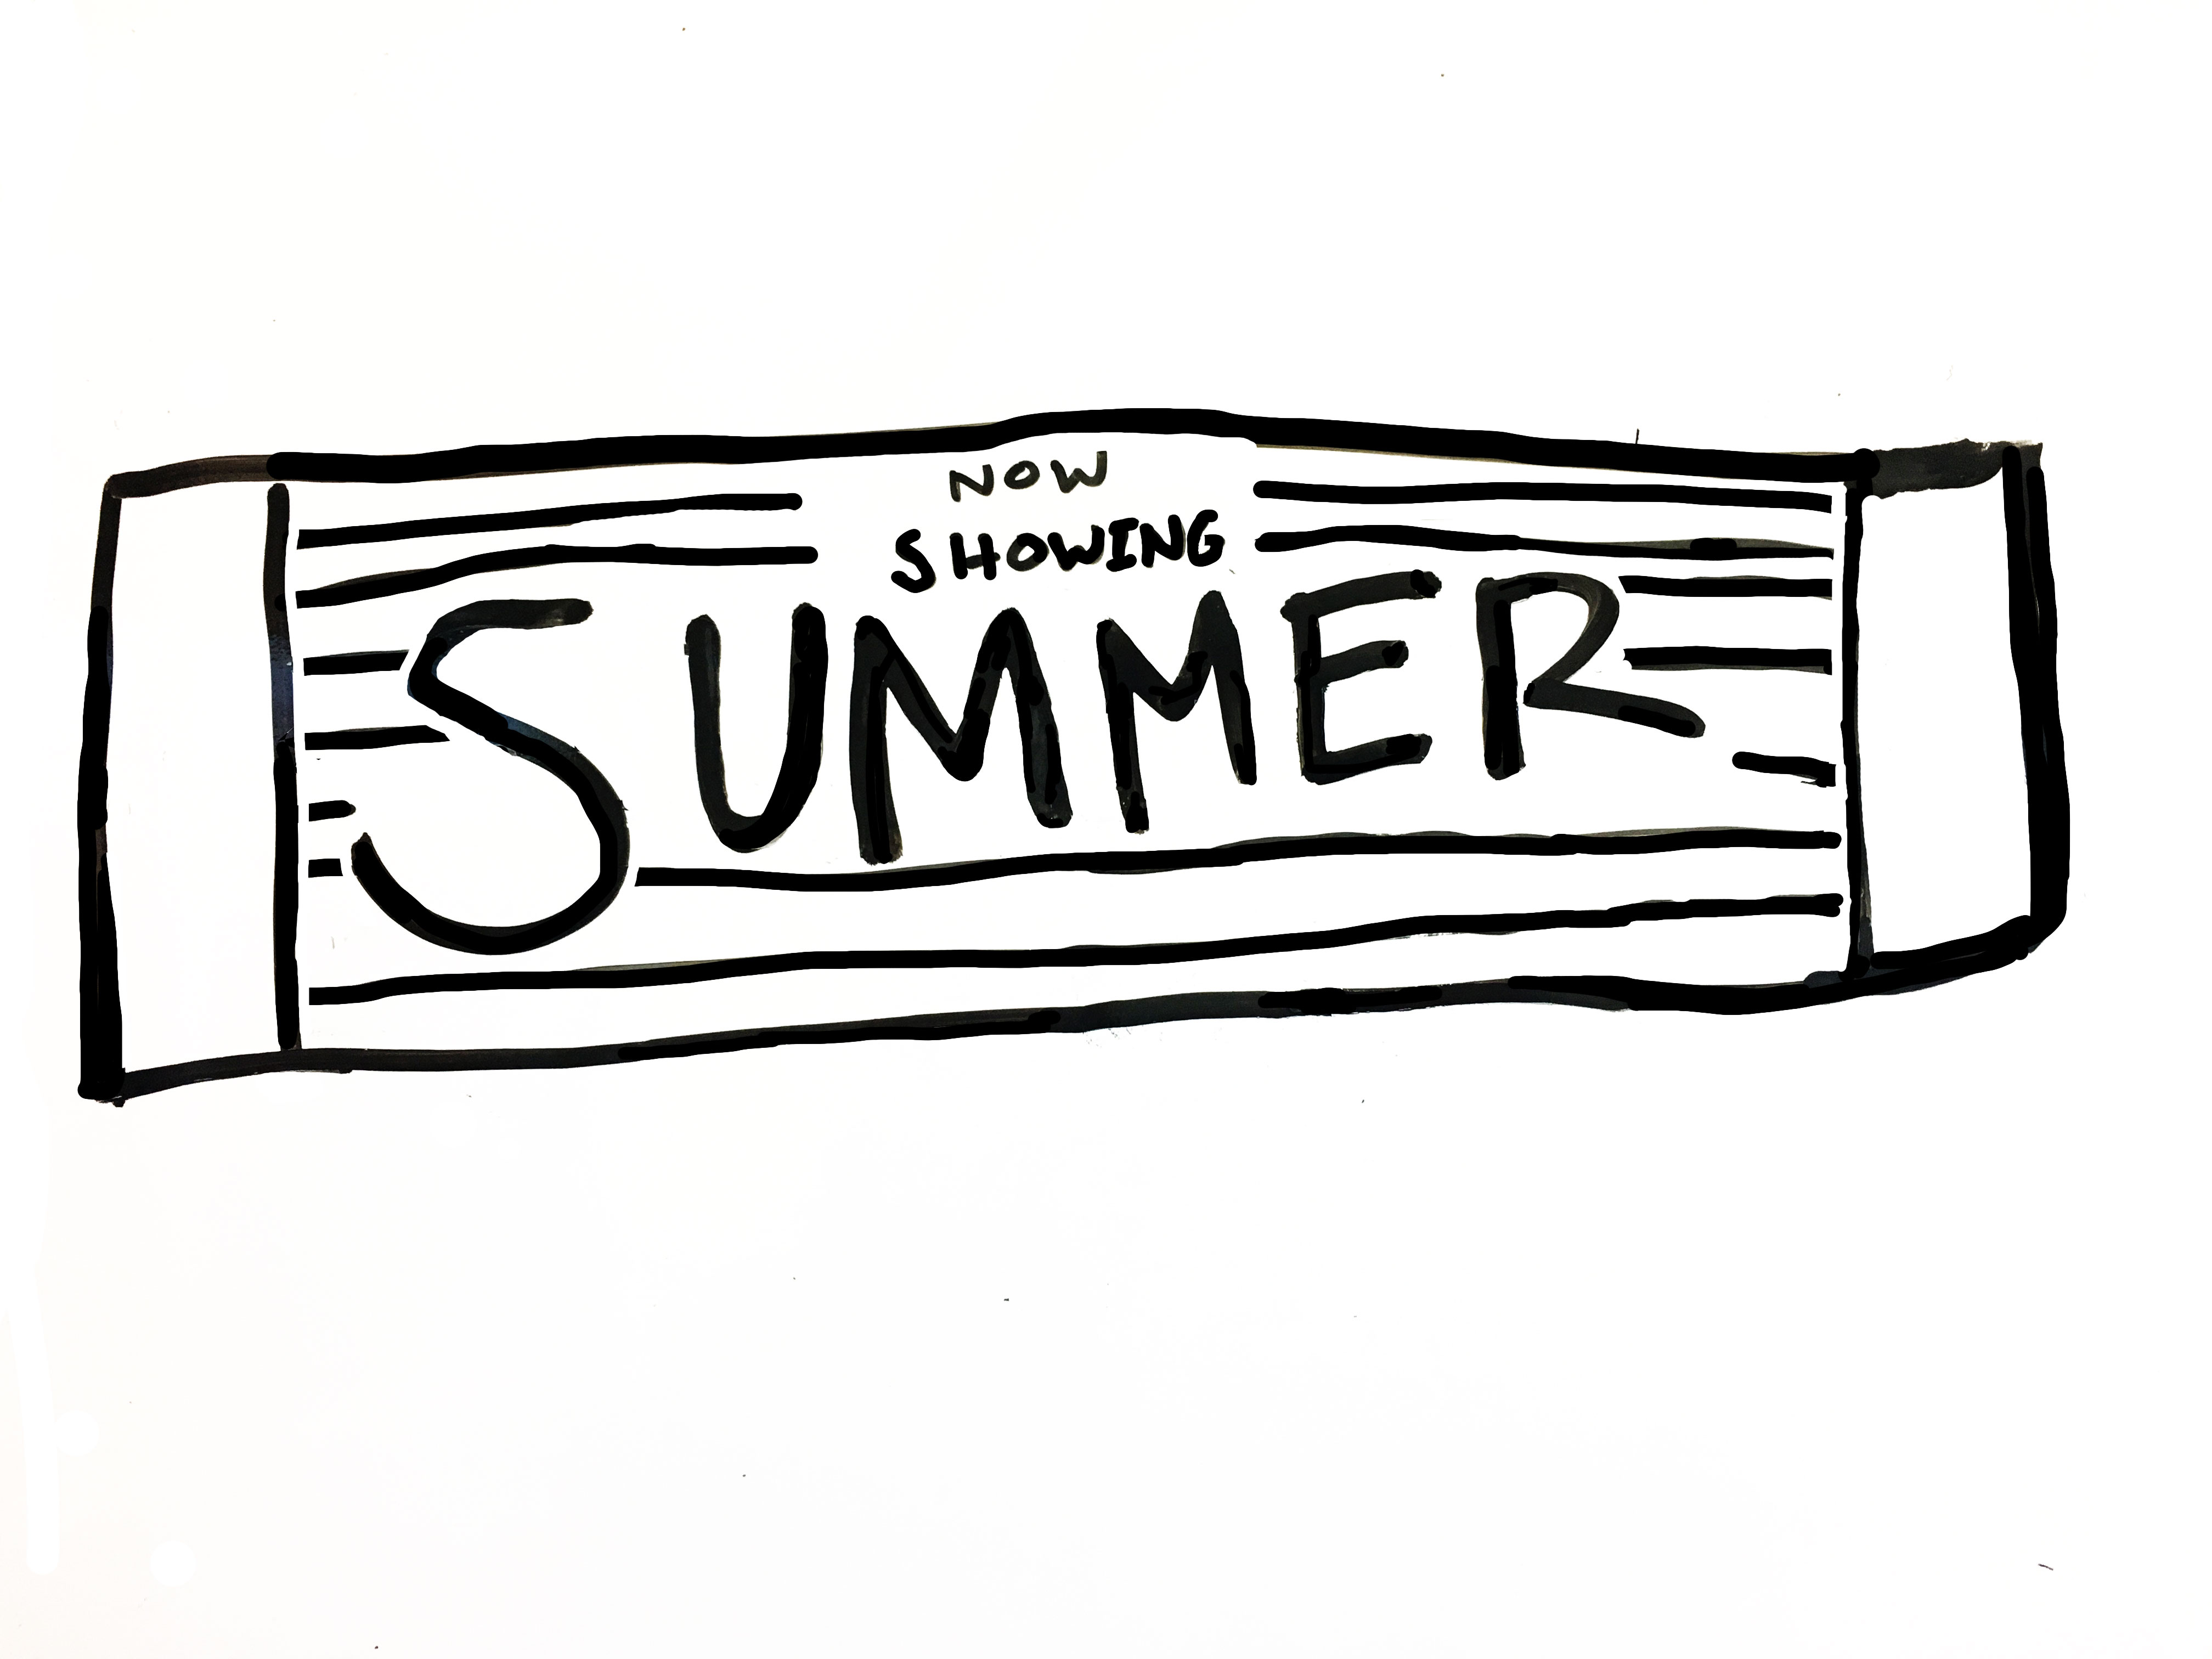 NOW
SHOWING
SUMMER